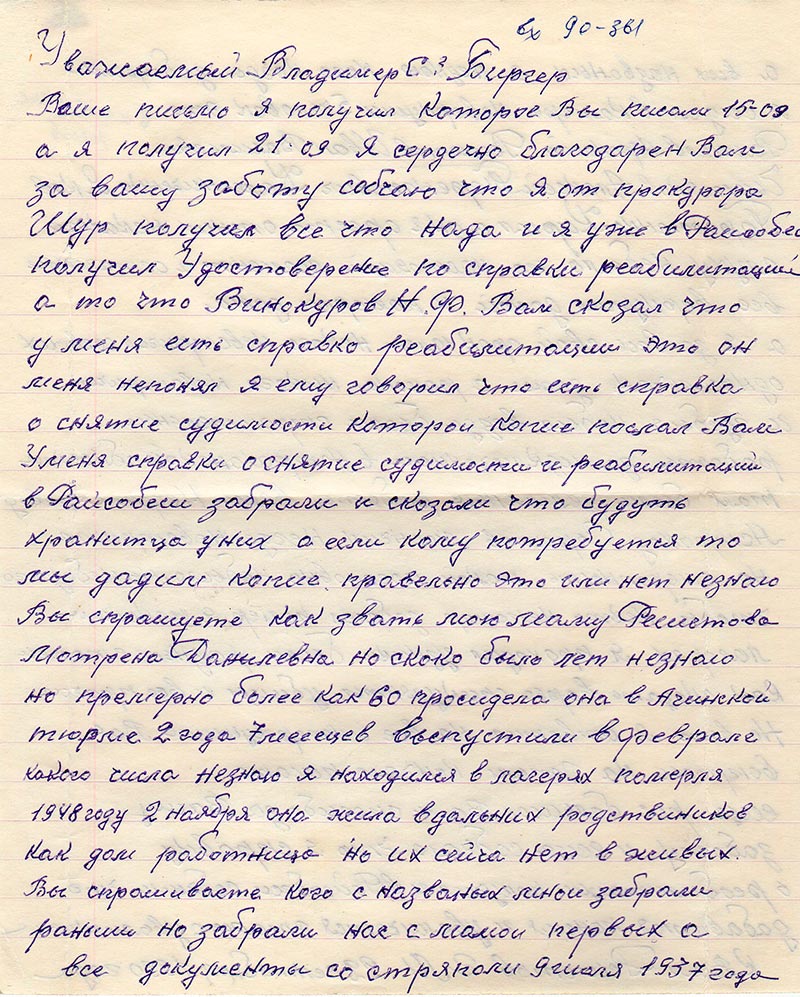 вх 90-361
Уважаемый Владимер С.? Биргер
Ваше письмо я получил которое Вы писали 15-09
а я получил 21.09 Я сердечно благодарен Вам
за вашу заботу собчаю что я от прокурора
Шур получил все что нада и я уже в Райсобеси
получил Удостоверение по справки реабилитаций
а то что Винокуров Н.Ф. Вам сказал что
у меня есть справка реабилитации это он
меня непонял я ему говорил что есть справка
о снятие судимости которой копие послал Вам
Уменя справки о снятие судимости и реабилитаций
в Райсобеси забрали и сказали что будуть
хранитца уних а если кому потребуется то
мы дадим копие. правельно это или нет незнаю
Вы спрашуете как звать мою маму Решетова
Мотрена Данилевна но скоко было лет незнаю
но премерно более как 60 просидела она в Ачинской
тюрме 2 года 7 месецев выпустили в феврале
какого числа незнаю я находился в лагерях померла
1948 году 2 ноября она жила вдальних родствиников
как дом работница но их сейча нет в живых.
Вы спрошиваете кого с названых мной забрали
раньши но забрали нас с мамой первых а
все документы со стряпали 9 июля 1937 года